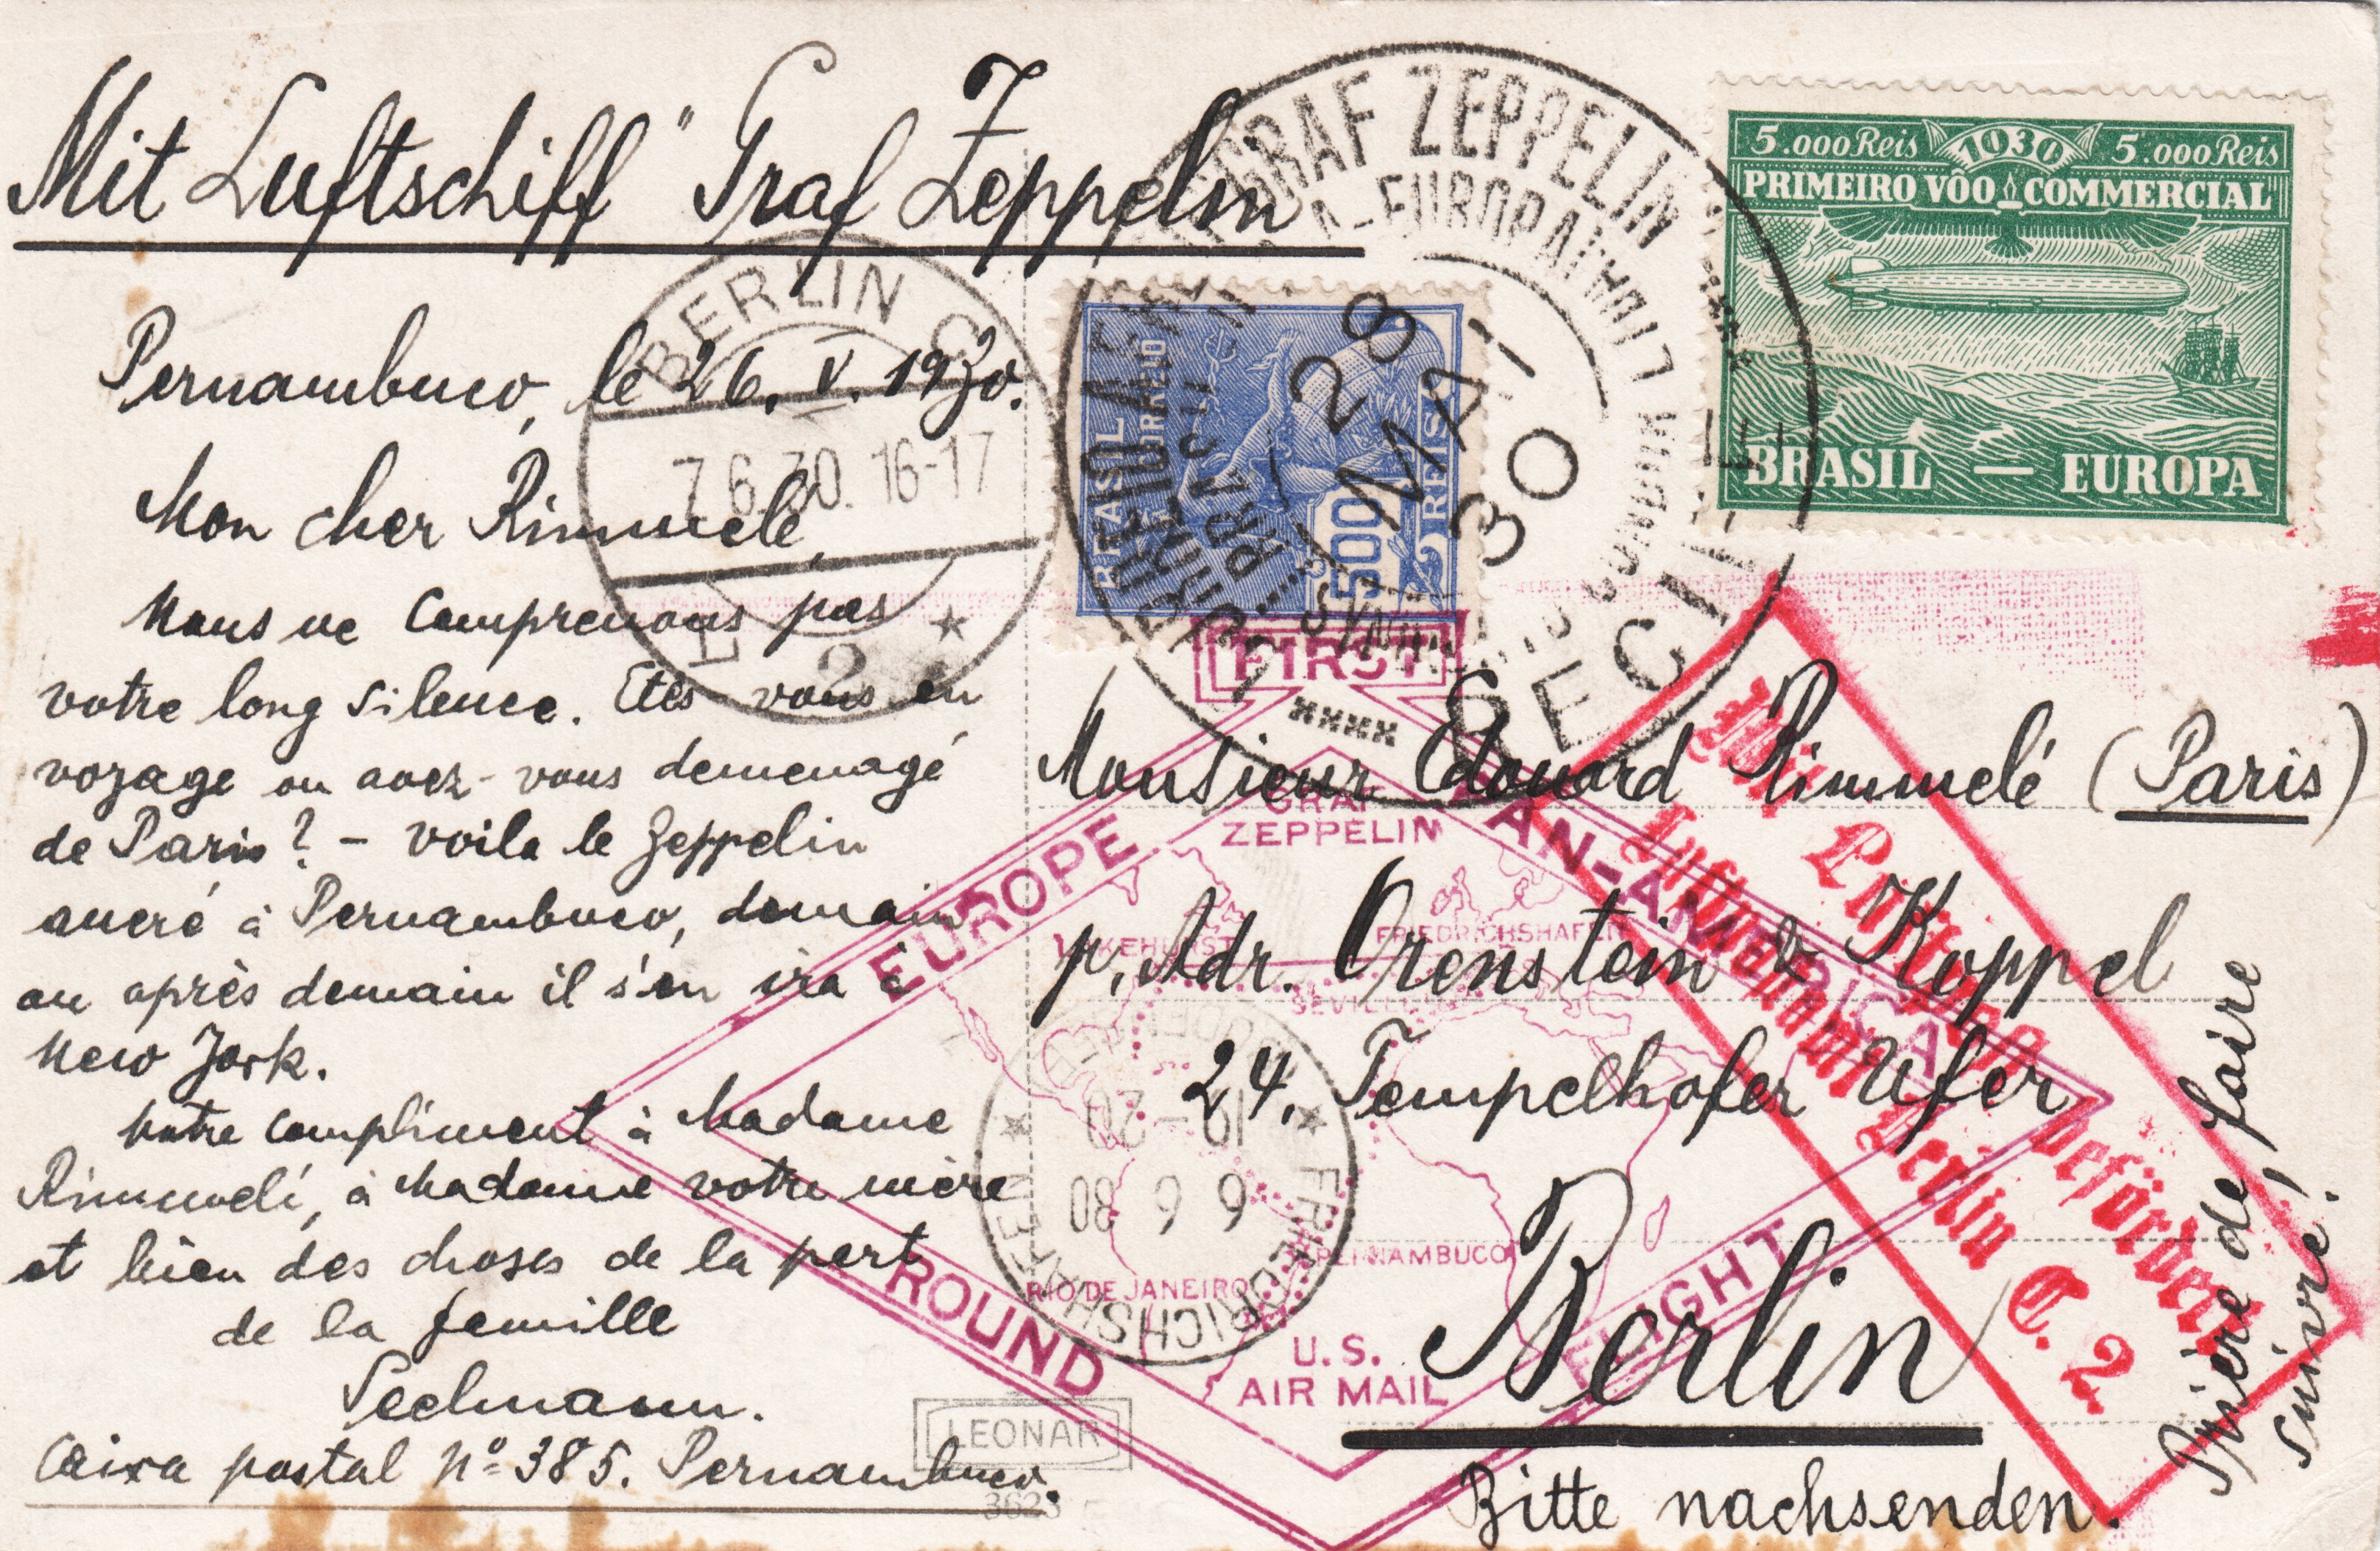 Mit Luftschiff "Graf Zeppelin
Pernambuco, le 26. V. 1930.
Mon cher Rimmelé,
Nous ne comprenons pas
votre long silence. Etes-vous en
voyage ou avez-vous demenagé
de Paris? - voila le Zeppelin
ancré à Pernambuco, demain
ou après demain il s'en ira à
New York.
Notre compliment à Madame
Rimmelé, à Madame votre mère
et bien des choses de la part
de la famille
Seelmann.
Caixa postal Nº 385. Pernambuco.
BERLIN C
7.6.30. 16-17
2
GRAF ZEPPELIN
28
MAI
30
RECIFE
BRASIL
CORREIO
500
REIS
5.000 Reis 1930 5.000 Reis
PRIMEIRO VÔO COMMERCIAL
BRASIL — EUROPA
Monsieur Edouard Rimmelé (Paris)
p. Adr. Orenstein & Koppel
24, Tempelhofer Ufer
Berlin
Bitte nachsenden.
Prière de faire
suivre!
FIRST
EUROPE
PAN-AMERICA
ROUND
FLIGHT
GRAF
ZEPPELIN
LAKEHURST
FRIEDRICHSHAFEN
SEVILLE
PERNAMBUCO
RIO DE JANEIRO
U.S.
AIR MAIL
Mit Luftpost befördert
Luftpostamt Berlin C. 2
FRIEDRICHSHAFEN
6 6 30
19-20
LEONAR
3623